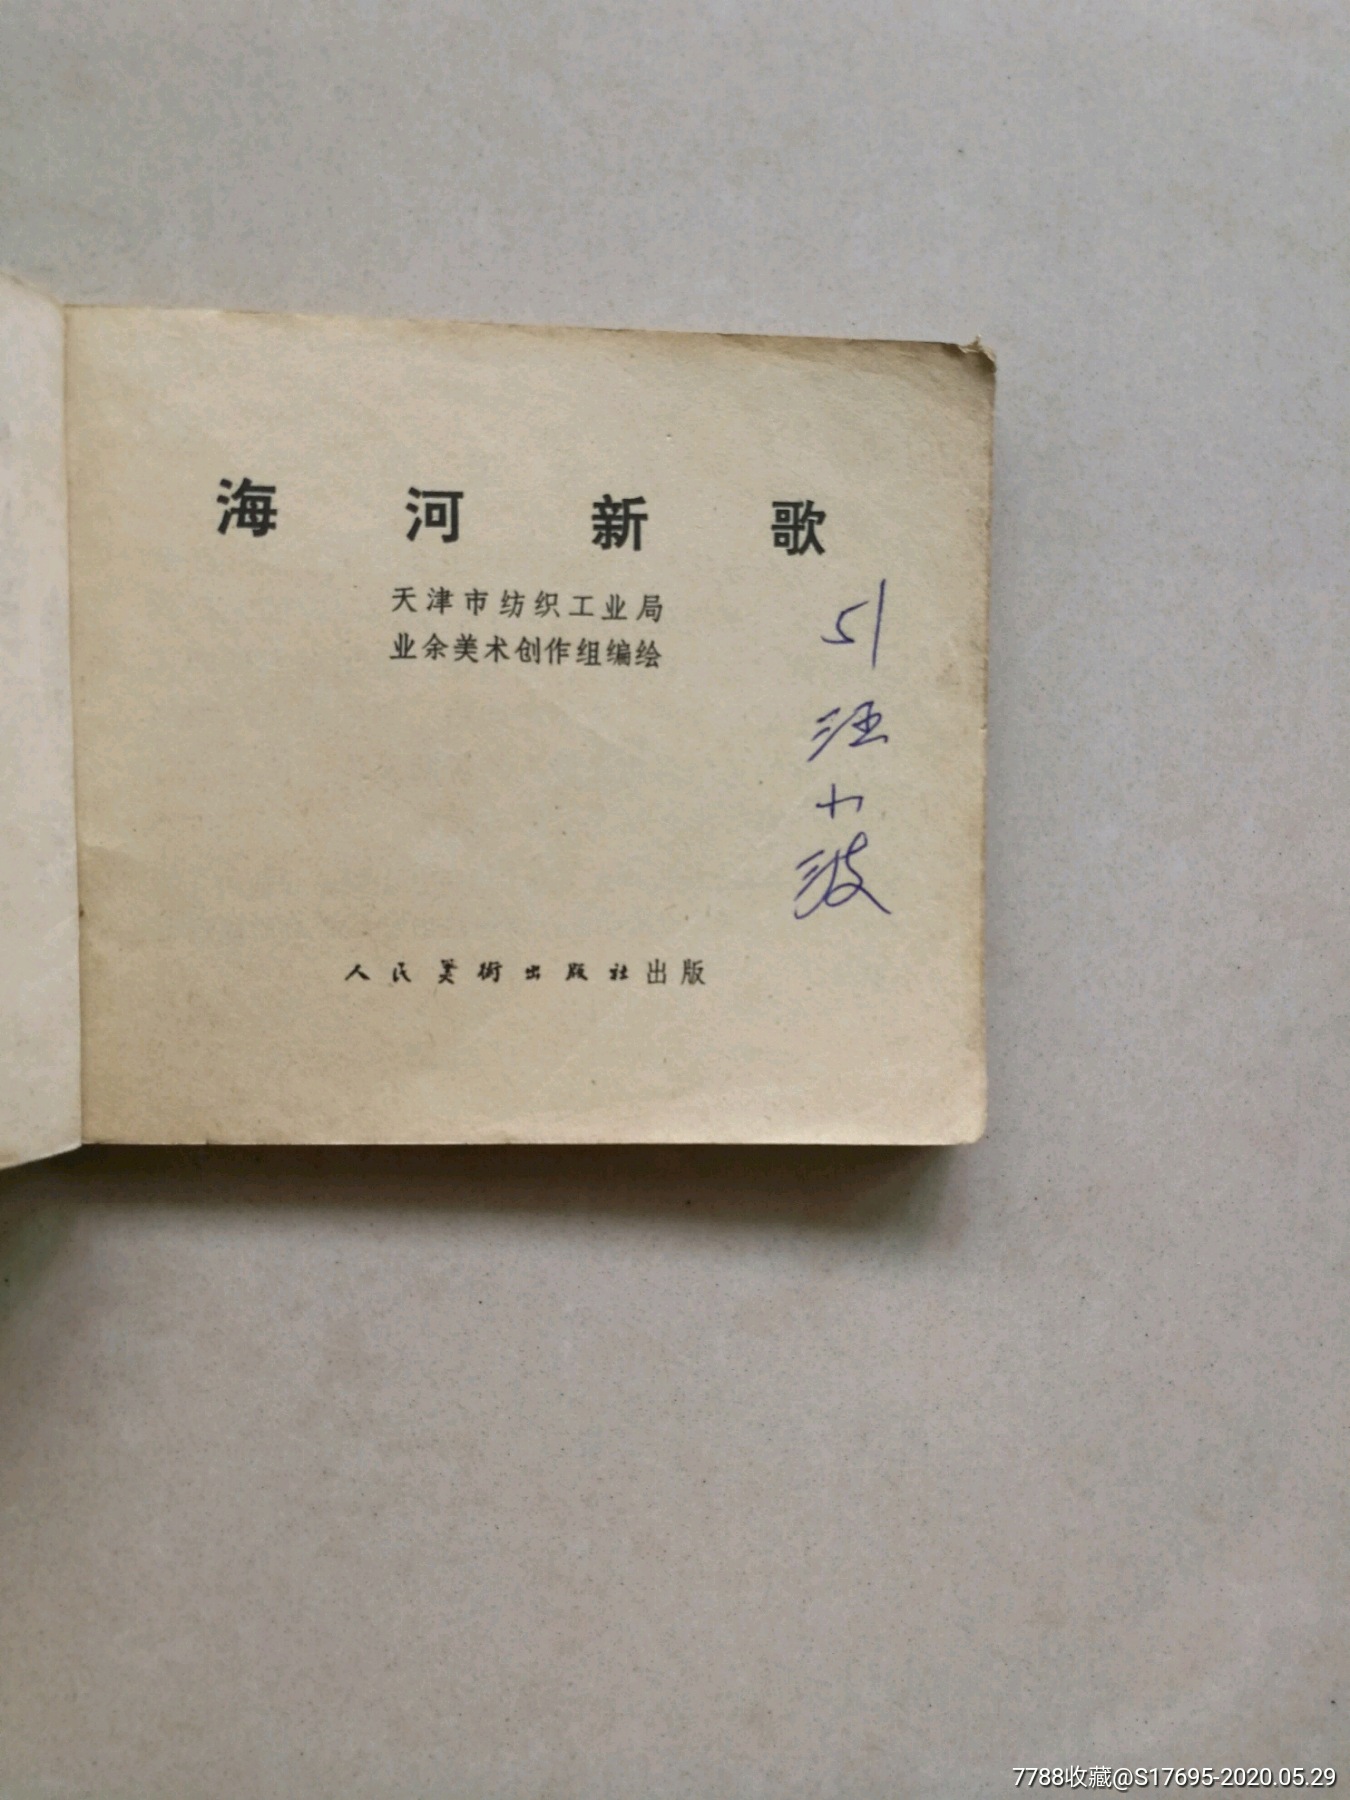 海河新歌
天津市纺织工业局
业余美术创作组编绘
51
汪
小
波
人民美術出版社出版
7788收藏@S17695-2020.05.29